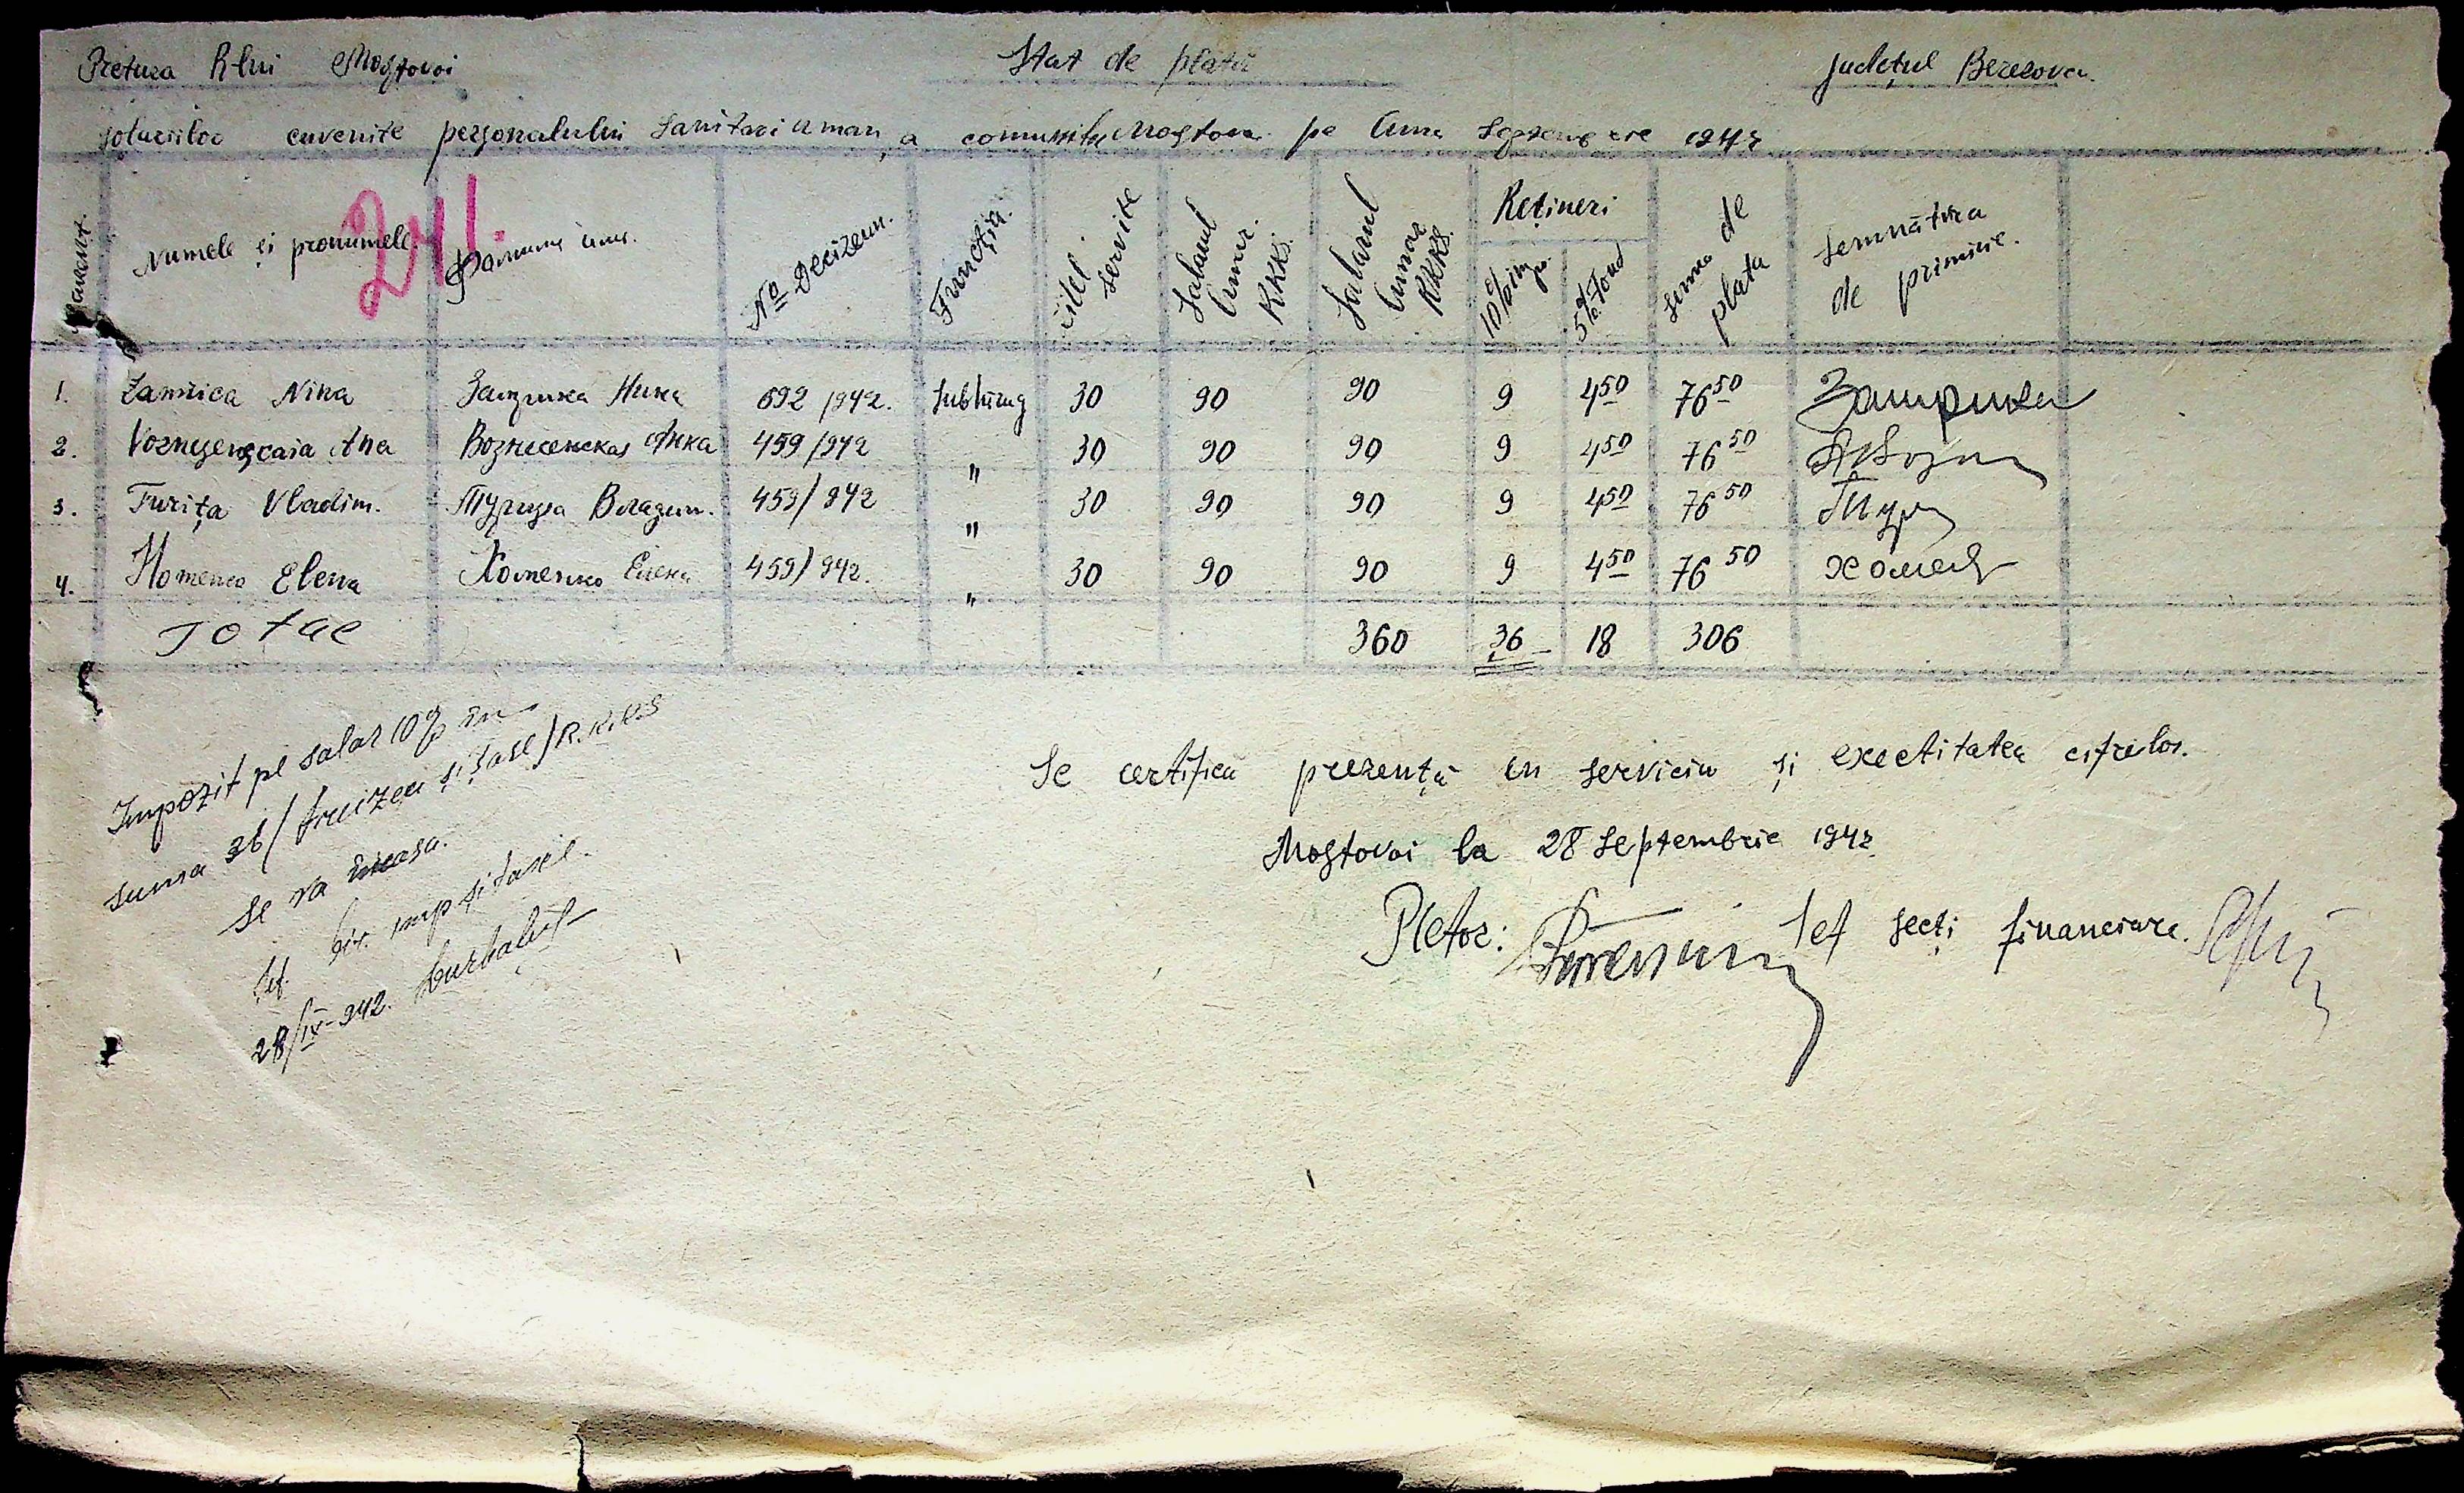 Pretura R-lui Mostovoi Stat de plată Județul Berezovca.
solariilor cuvenite personalului Sanitar uman, a comunitu Mostovoi pe luna Septembrie 1942
241.
Numele și pronumele. Фамилия имя. No Deciziun. Funcția. zilel servite Salarul lunar. RKKS. Salarul lunar RKKS. Rețineri suma de plata semnătura de primire.
10% imp. 5% Fond
1. Zamrica Nina Замрика Нина 692/942. Subhirug 30 90 90 9 4 50 76 50 Замрика
2. Voznesenscaia Ana Вознесенская Анна 459/942 " 30 90 90 9 4 50 76 50
3. Turița Vladim. Турица Владим. 459/942 " 30 90 90 9 4 50 76 50 Тур
4. Homenco Elena Хоменко Елена 459/942. " 30 90 90 9 4 50 76 50 Хомен
Total 360 36 18 306
Impozit pe salar 10% în
suma 36/treizeci și șase/R.K.K.S
se va încasa.
Șef. Bir. imp și taxe.
28/IX-942.
Se certifică prezența în serviciu și exectitatea cifrelor.
Mostovoi la 28 Septembrie 1942
Pretor: Șef secți financiare.